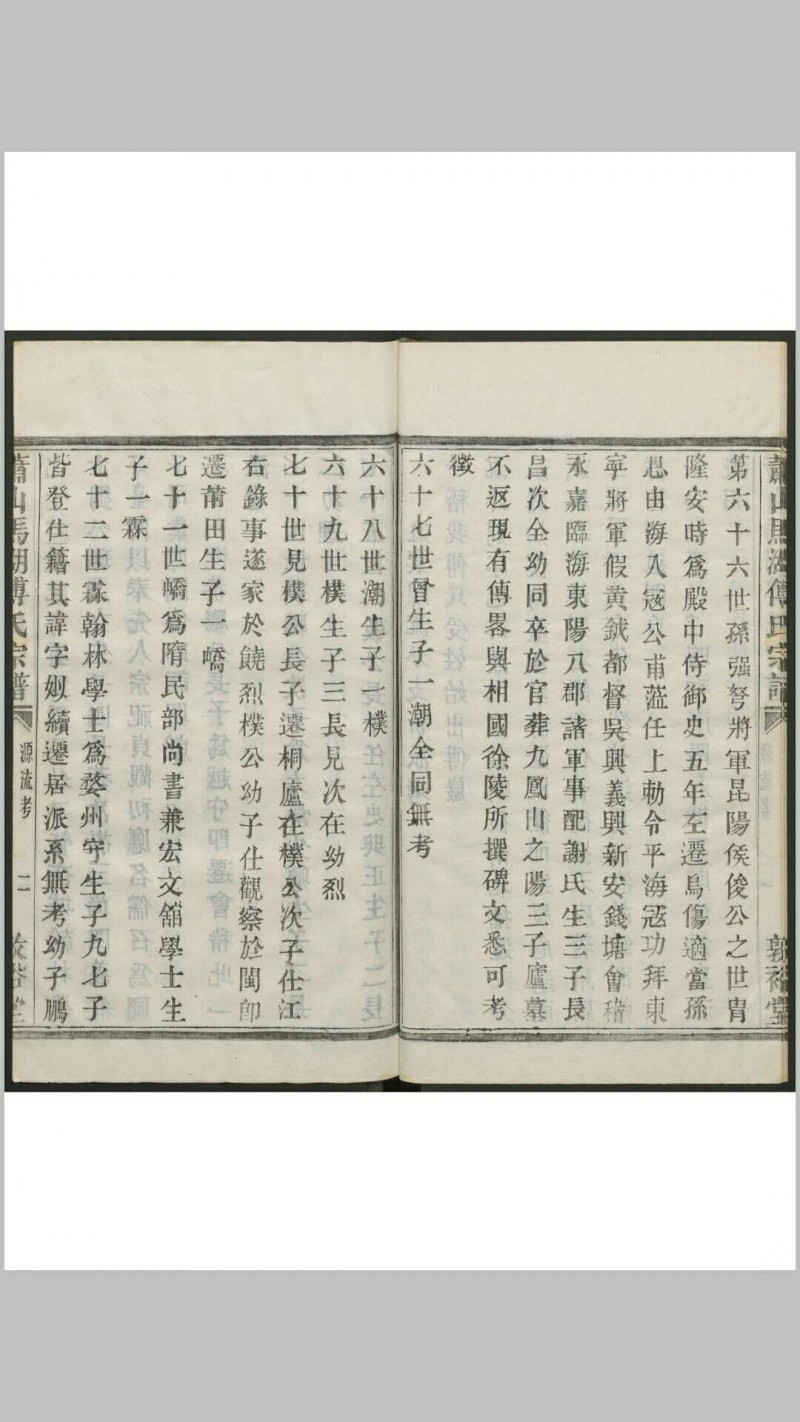 蕭山馬湖傅氏宗譜
敦裕堂
第六十六世孫强弩將軍昆陽侯俊公之世胄
隆安時爲殿中侍御史五年左遷烏傷適當孫
恩由海入寇公甫蒞任上勅令平海寇功拜東
寜將軍假黄鉞都督吳興義興新安錢塘會稽
永嘉臨海東陽八郡諸軍事配謝氏生三子長
昌次全幼同卒於官葬九鳳山之陽三子廬墓
不返現有傳畧與相國徐陵所撰碑文悉可考
徵
六十七世曾生子一潮全同無考
六十八世潮生子一樸
六十九世樸生子三長見次在幼烈
七十世見樸公長子遷桐廬在樸公次子仕江
右錄事遂家於饒烈樸公幼子仕觀察於閩卽
遷莆田生子一嶠
七十一世嶠爲隋民部尚書兼宏文舘學士生
子一霖
七十二世霖翰林學士爲婺州守生子九七子
皆登仕籍其諱字姒續遷居派系無考幼子鵬
蕭山馬湖傅氏宗譜
源流考
二
敦裕堂